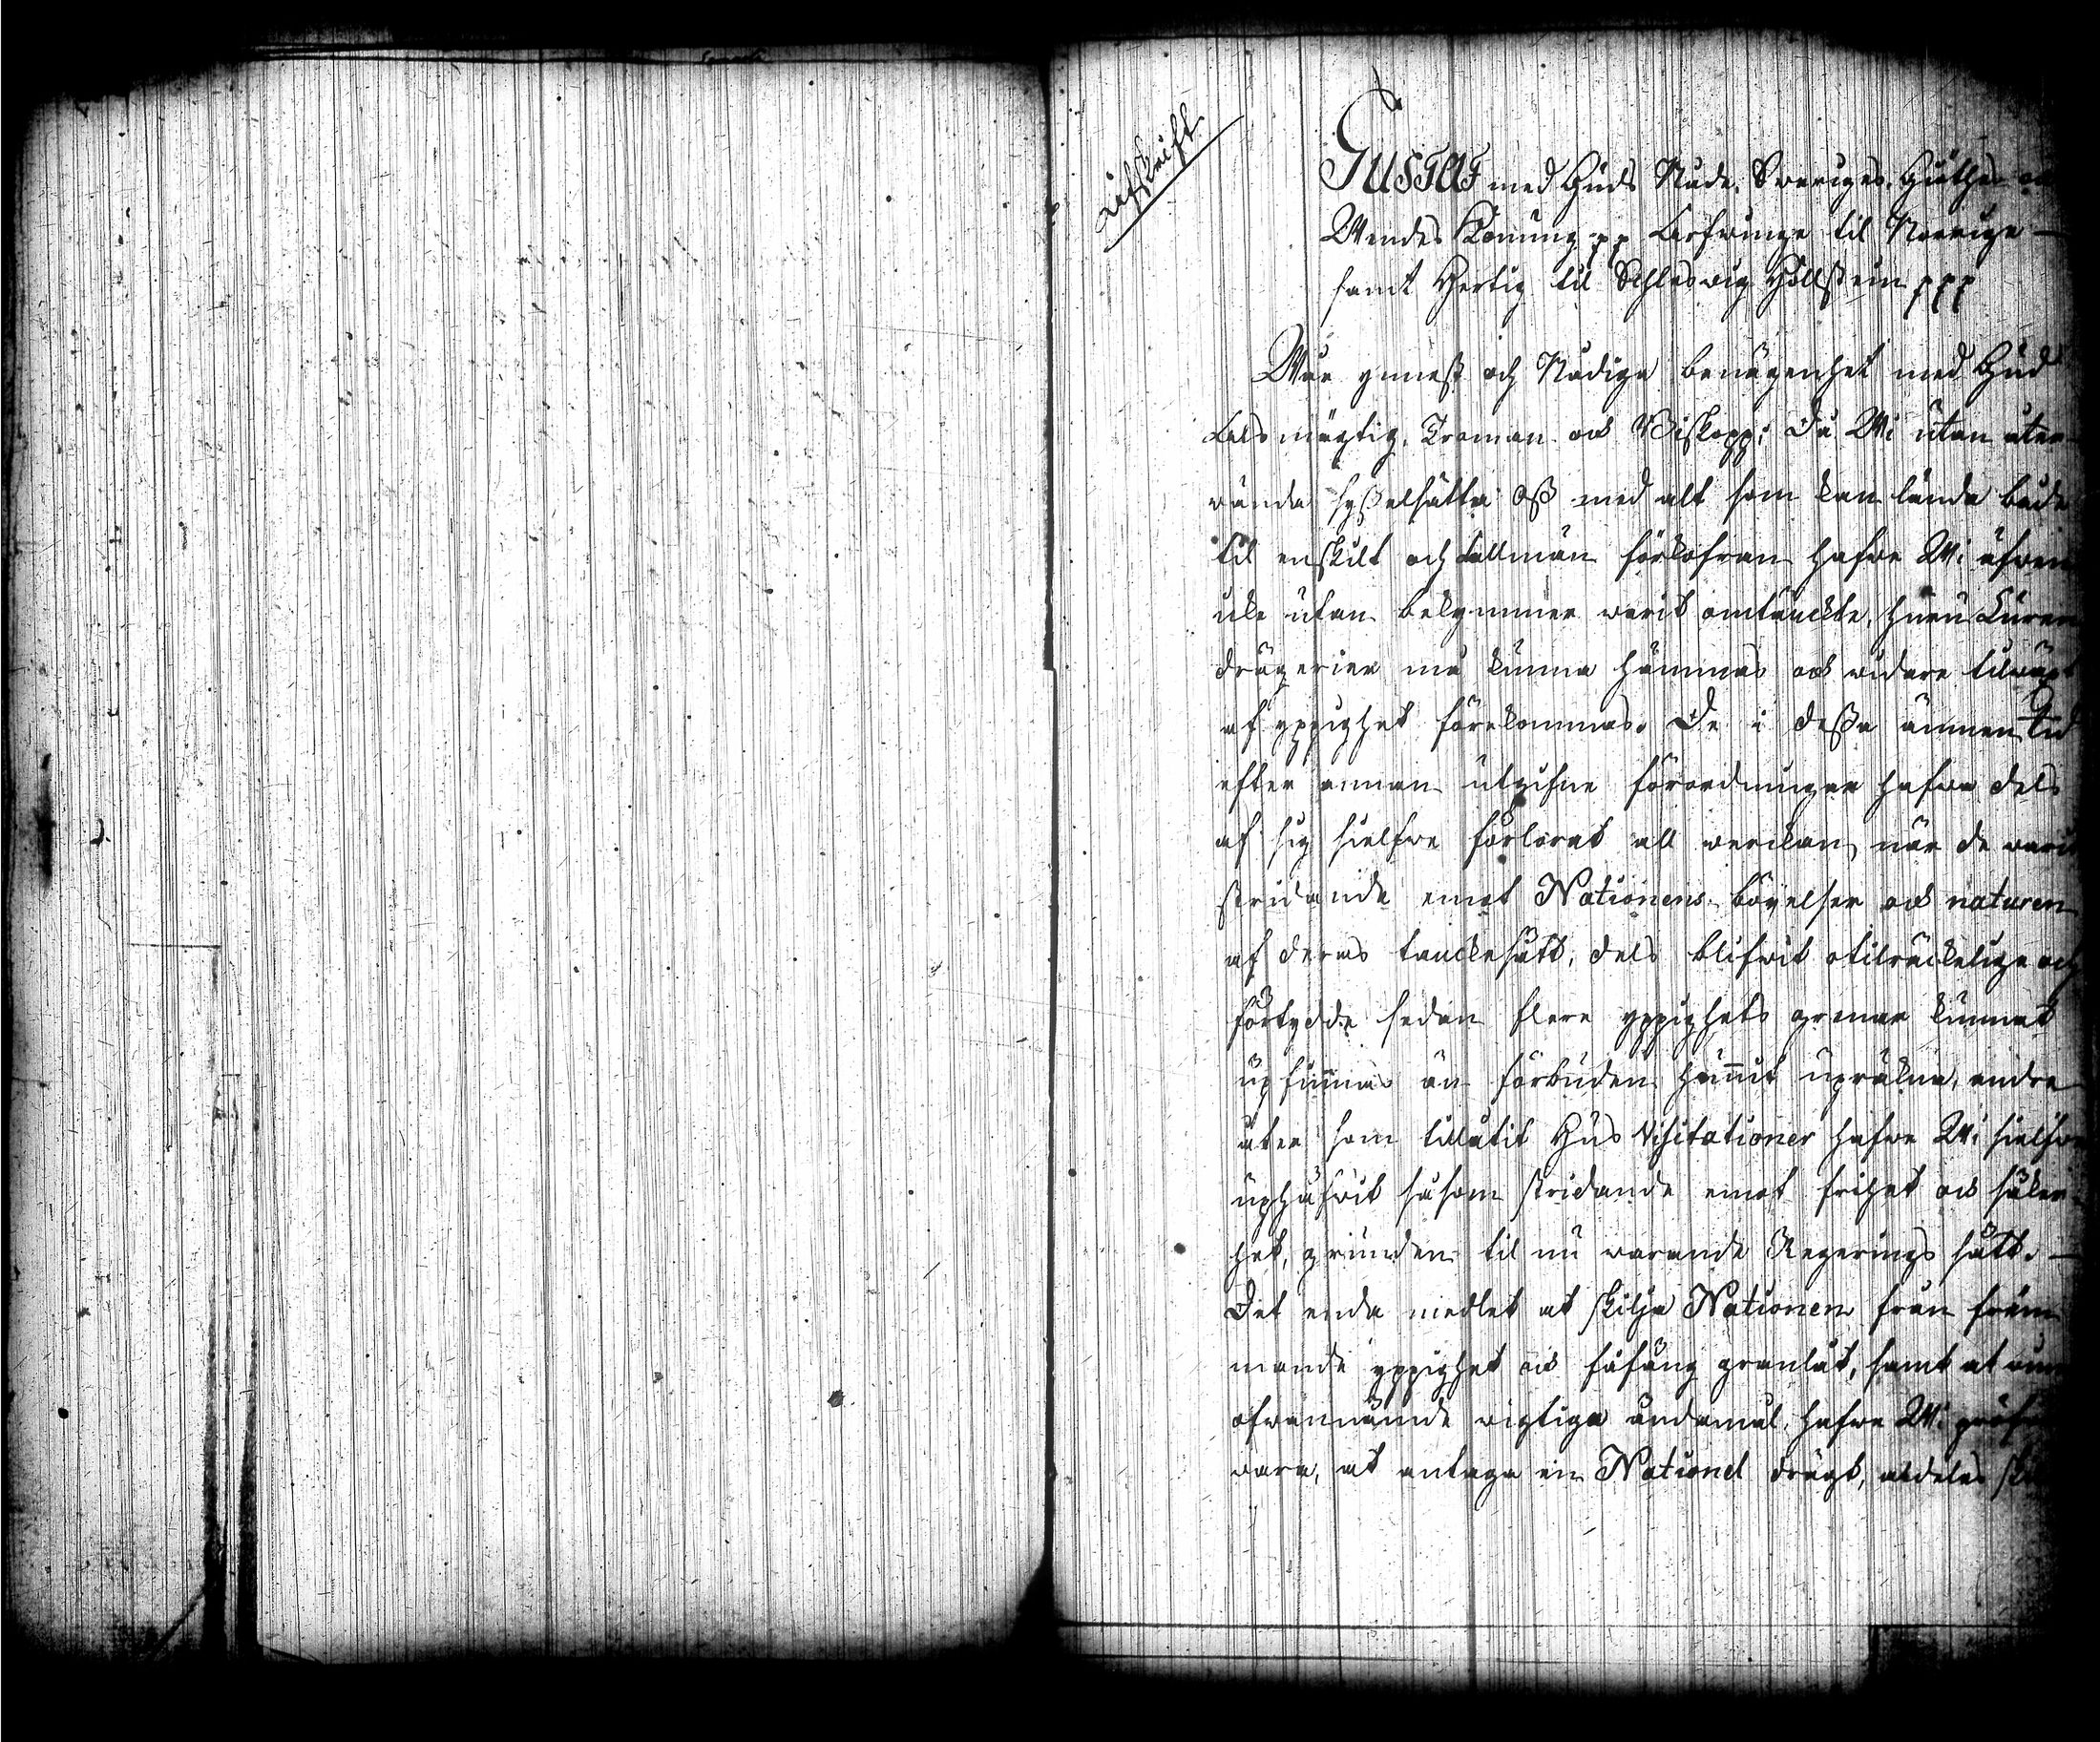 Afskrift
GUSTAF med Guds Nåde, Sweriges, Giöthes och
Wendes Konung pp Arfwinge til Norrige —
samt Hertig til Schleswig Hollstein ppp
Wår ynnest och Nådiga benägenhet med Gud
Alsmägtig, Troman och Biskopp; Då Wi utan åter-
wända sysselsätta Oss med alt som kan lända både
til enskilt och allmän förkofran hafwe Wi äfwen
icke utan bekymmer warit omtänckte, huru Luren-
drägerier må kunna hämmas och widare tilwäxt
af yppighet förekommas. De i dessa ämnen tid
efter annan utgifne förordningar hafwa dels
af sig sielfwe förlorat all werckan, när de warit
stridande emot Nationens böyelser och naturen
af deras tänckesätt, dels blifwit otilräckelige och
förtydde sedan flere yppighets grenar kunnat
upfinnas än förbuden hunnit upräkna, andra
åter som tillåtit Hus Visitationer hafwe Wi sielfwe
uphäfwit såsom stridande emot frihet och säker-
het, grunden til nu warande Regerings sätt. —
Det enda medlet at skilja Nationen från främ-
mande yppighet och fåfäng granlåt, samt at winna
ofwannämnde wigtiga ändamål, hafwe Wi pröfwat
wara, at antaga en Nationel drägt, aldeles skild